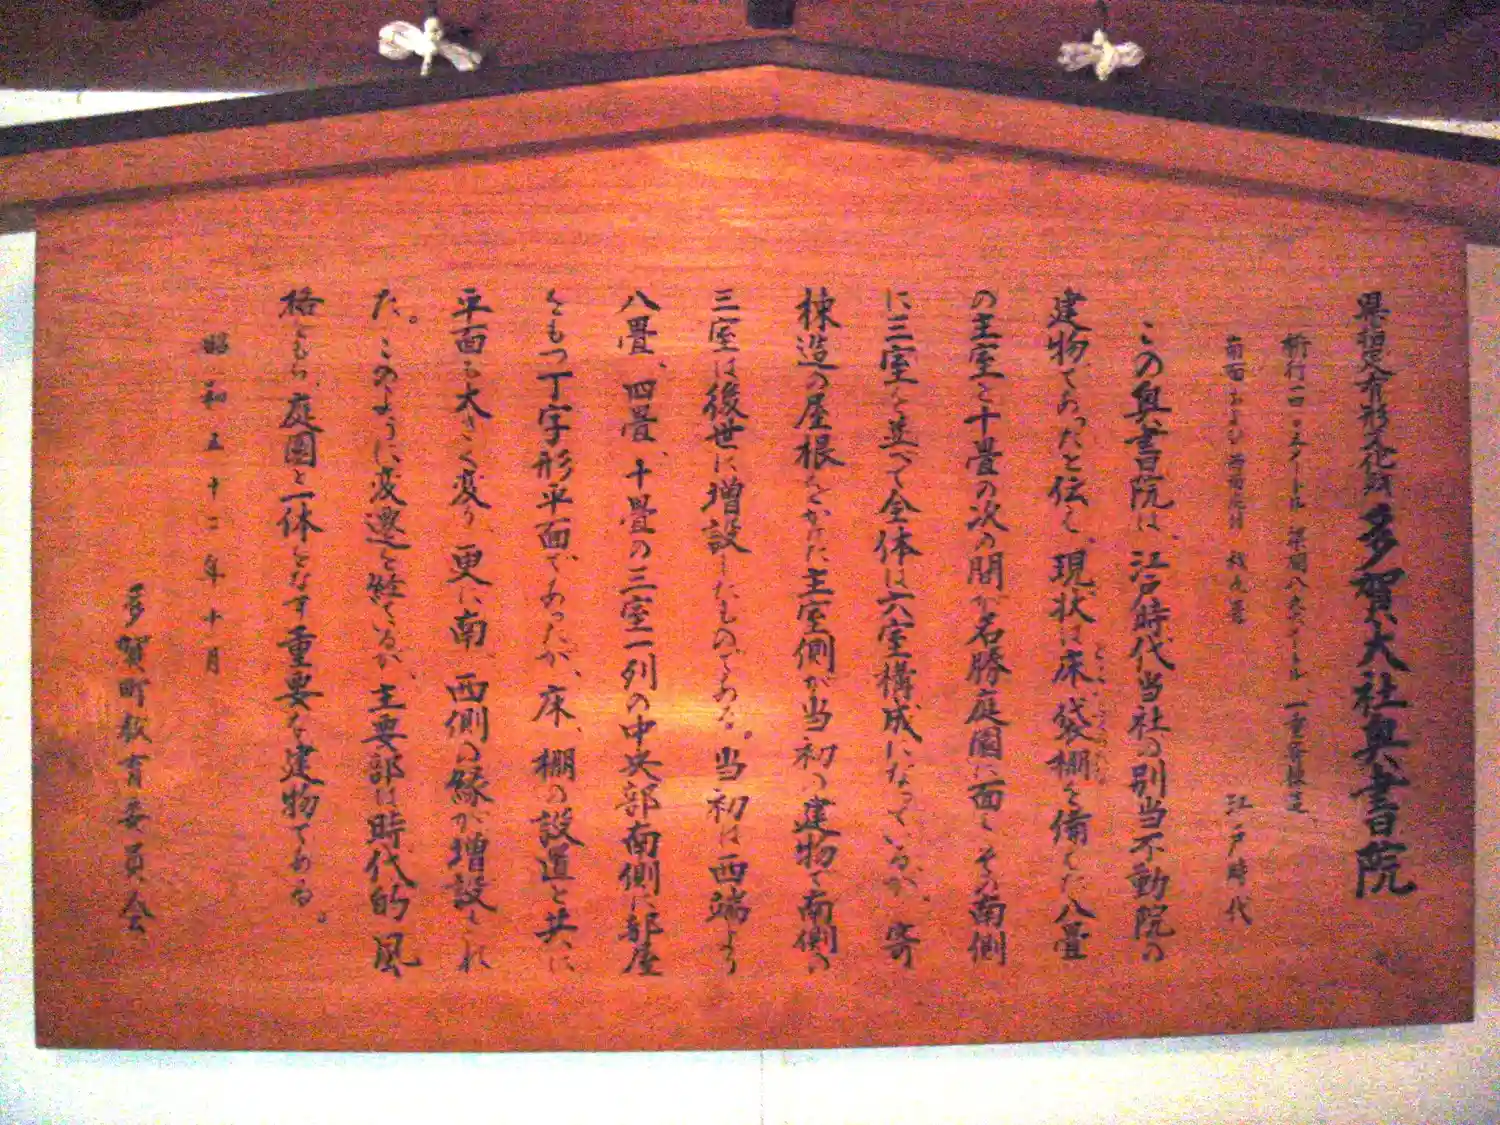 県指定有形文化財 多賀大社奥書院
桁行 メートル 梁間八 メートル、一重寄棟造、
南面および西面庇付 桟瓦葺 江戸時代
この奥書院は、江戸時代当社の別当不動院の
建物であったと伝え、現状は床、袋棚を備えた八畳
の主室と十畳の次の間が名勝庭園に面しその南側
に三室を並べて全体は六室構成になっているが、寄
棟造の屋根をかけた主室側が当初の建物で南側の
三室は後世に増設したものである。当初は西端より
八畳、四畳、十畳の三室一列の中央部南側に部屋
をもつ丁字形平面であったが、床、棚の設置と共に
平面も大きく変り、更に南、西側の縁が増設され
た。このように変遷を経ているが、主要部は時代的風
格をもち、庭園と一体となす重要な建物である。
昭和五十二年十月
多賀町教育委員会